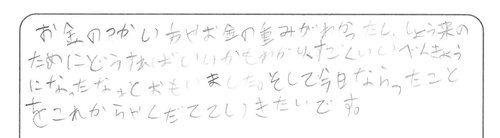 お金のつかい方やお金の重みがわかったし、しょう来の
ためにどうすればいいかもわかりすごくいいべんきょう
になったなぁとおもいました。そして今日ならったこと
をこれからやくだてていきたいです。